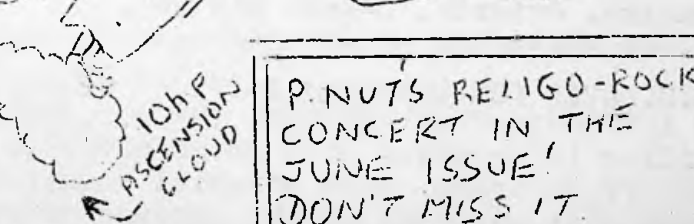 10hP
ASCENSION
CLOUD
P. NUT'S RELIGO-ROCK
CONCERT IN THE
JUNE ISSUE!
DON'T MISS IT.